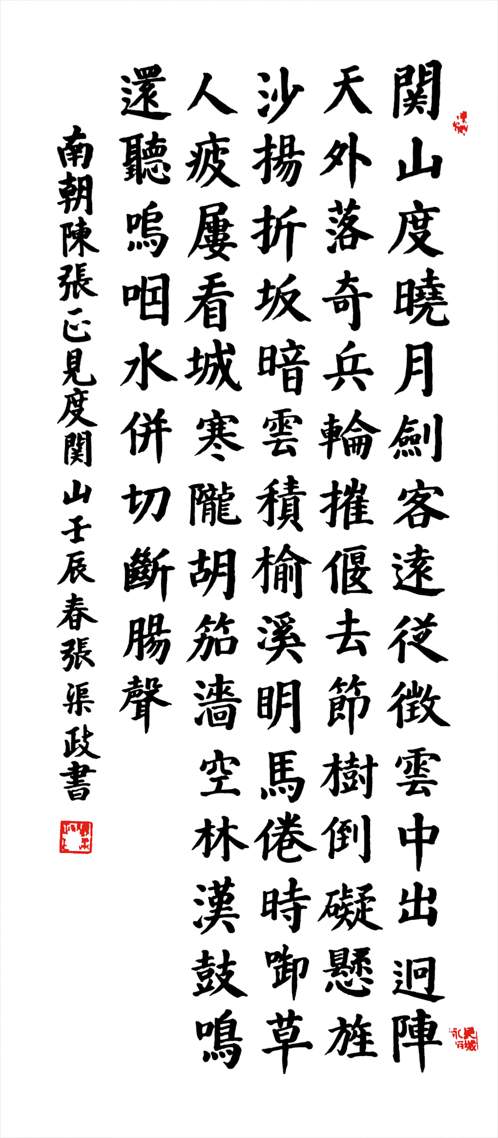 関山度曉月劍客遠従徴雲中出迥陣
天外落奇兵輪摧偃去節樹倒礙懸旌
沙揚折坂暗雲積榆溪明馬倦時啣草
人疲屢看城寒隴胡笳澀空林漢鼓鳴
還聽嗚咽水併切斷腸聲
南朝陳張正見度関山壬辰春張渠政書